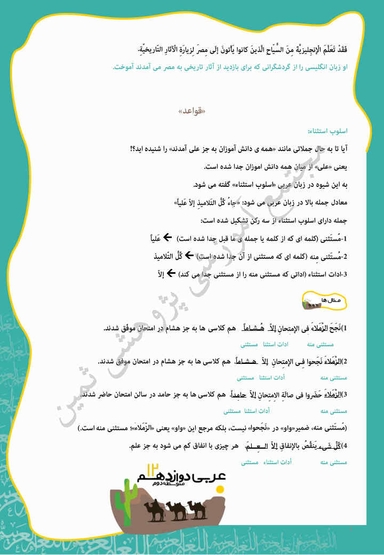 فَقَدْ تَعَلَّمَ الْإنجليزيَّةَ مِنَ السُّيّاحِ الَّذينَ كانوا يَأتونَ إلَى مِصرَ لِزيارَةِ الْآثارِ التّاريخيَّةِ.
او زبان انگلیسی را از گردشگرانی که برای بازدید از آثار تاریخی به مصر می آمدند آموخت.
«قواعد»
اسلوب استثناء:
آیا تا به حال جملاتی مانند «همه ی دانش آموزان به جز علی آمدند» را شنیده اید؟!
یعنی «علی» از میان همه دانش اموزان جدا شده است.
به این شیوه در زبان عربی «اسلوب استثناء» گفته می شود.
معادل جمله بالا در زبان عربی می شود: «جاءَ کُلُّ التَّلامیذِ إلّا عَلیّاً»
جمله دارای اسلوب استثناء از سه رکن تشکیل شده است:
1-مُستَثنی (کلمه ای که از کلمه یا جمله ی ما قبل جدا شده است) ← عَلیّاً
2-مُستَثنی مِنه (کلمه ای که مستثنی از آن جدا شده است) ← کُلُّ التَّلامیذ
3-ادات استثناء (اداتی که مستثنی منه را از مستثنی جدا می کند) ← إلّا
مثال ها
1)نَجَحَ الزُّمَلاءُ فی الإمتحانِ إلّا هشاماً. هم کلاسی ها به جز هشام در امتحان موفق شدند.
مستثنی منه ادات استثنا مستثنی
2)الزُّمَلاءُ نَجَحوا فی الإمتحانِ إلّا هشاماً. هم کلاسی ها به جز هشام در امتحان موفق شدند.
مستثنی منه أدات استثنا مستثنی
3)الزُّمَلاءُ حَضَروا فی صالَةِ الإمتِحانِ إلّا حامداً. هم کلاسی ها به جز حامد در سالن امتحان حاضر شدند.
مستثنی منه أدات استثنا مستثنی
(مُستَثنی منه، ضمیر«واو» در «نَجَحوا» نیست، بلکه مرجع این «واو» یعنی «الزُّمَلاء» مستثنی منه است.)
4)کُلُّ شَیءٍ یَنقُصُ بالإنفاقِ إلّا العِلمَ. هر چیزی با انفاق کم می شود به جز علم.
مستثنی منه أدات استثناء مستثنی
عربی دوازدهم ۱۲
متوسطه دوم
مجتمع آموزشی پژوهشی ثمین